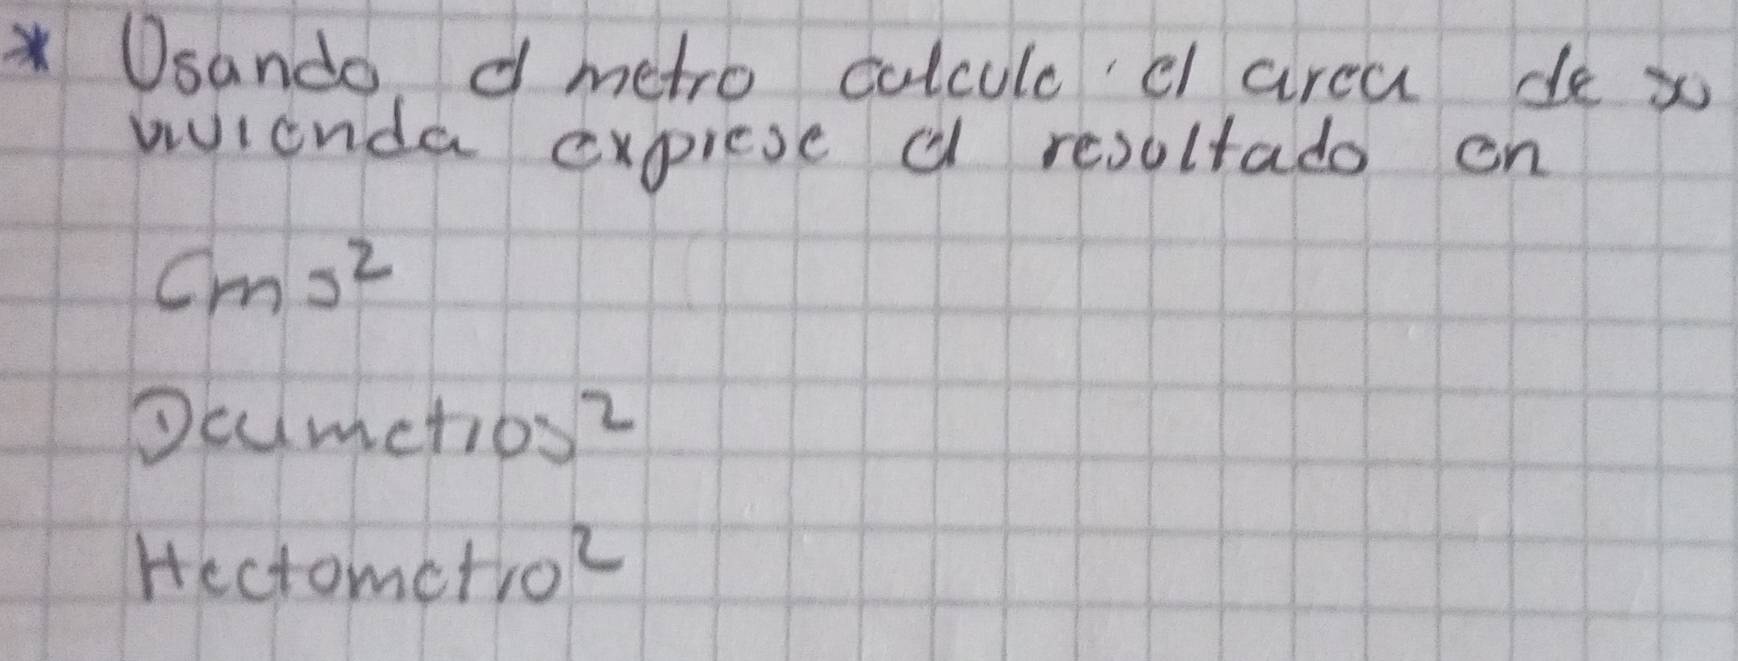 * Usando el metro calcule el area de su
vivienda exprese el resultado en
Cms²
Decametros²
Hectometro²